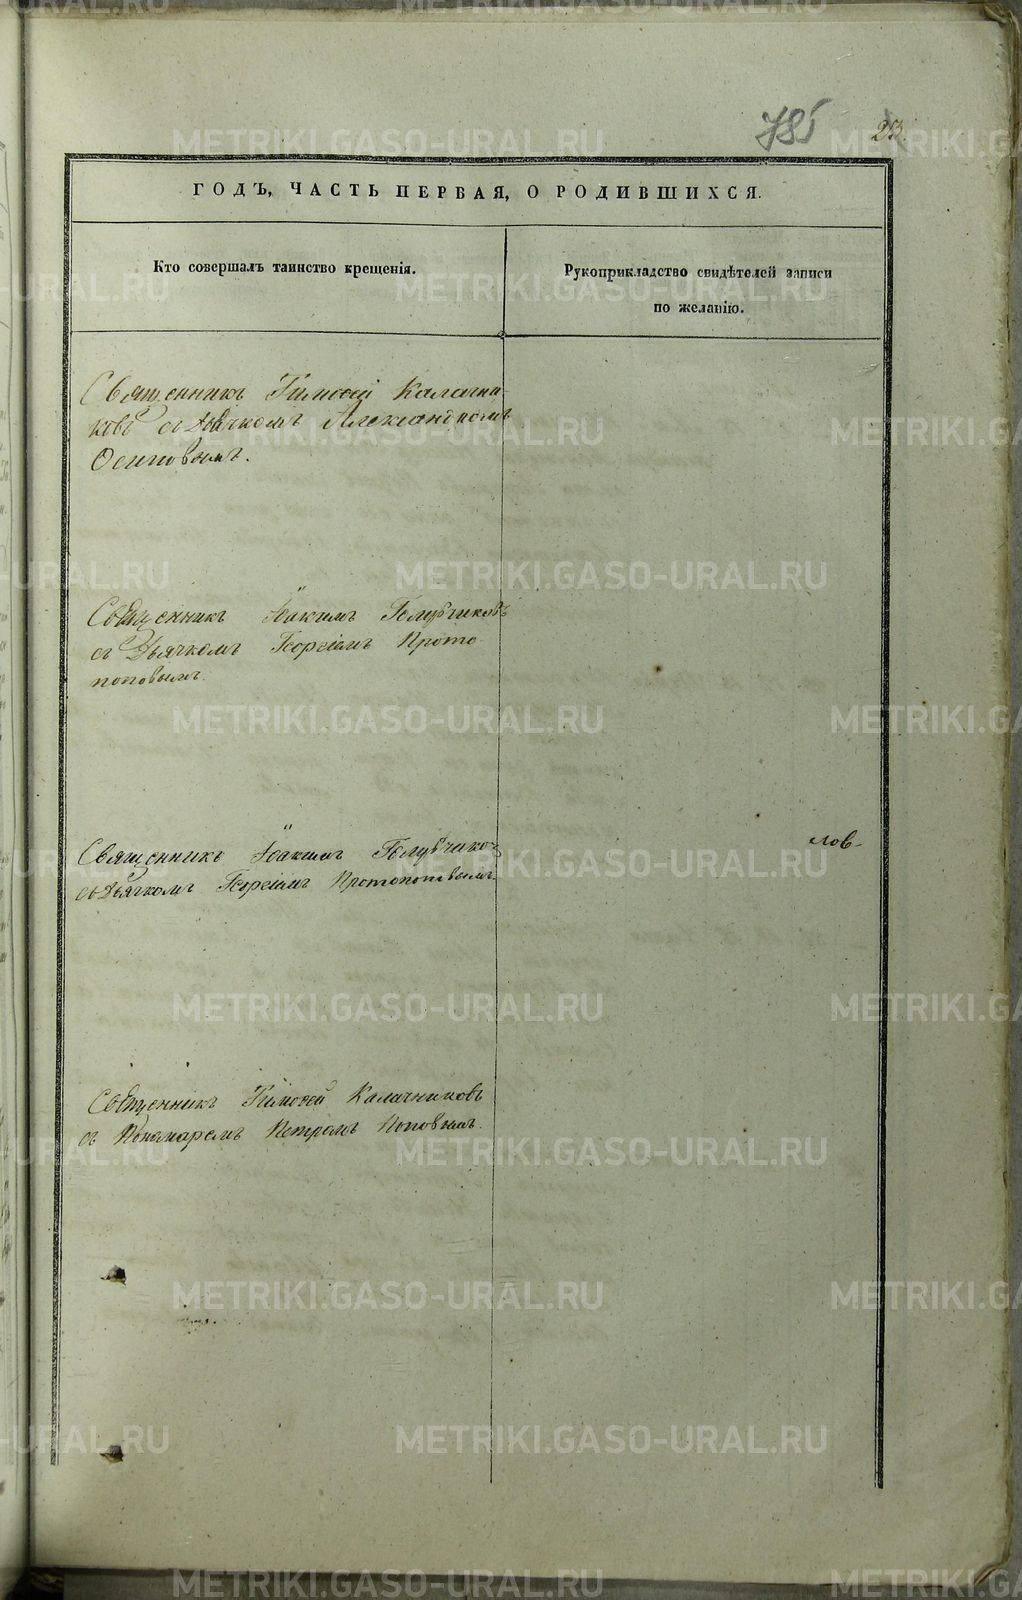 785
23
ГОДЪ, ЧАСТЬ ПЕРВАЯ, О РОДИВШИХСЯ.
Кто совершалъ таинство крещенія.
Рукоприкладство свидѣтелей записи
по желанію.
Священникъ Тимофей Калачни
ковъ съ Дьячкомъ Александромъ
Осиповымъ.
Священникъ Іоакимъ Голубчиковъ
съ Дьячкомъ Георгіемъ Прото
поповымъ.
Священникъ Іоакимъ Голубчико
съ Дьячкомъ Георгіемъ Протопоповымъ.
лов-
Священникъ Тимофей Калачниковъ
съ Пономаремъ Петромъ Поповымъ.
METRIKI.GASO-URAL.RU